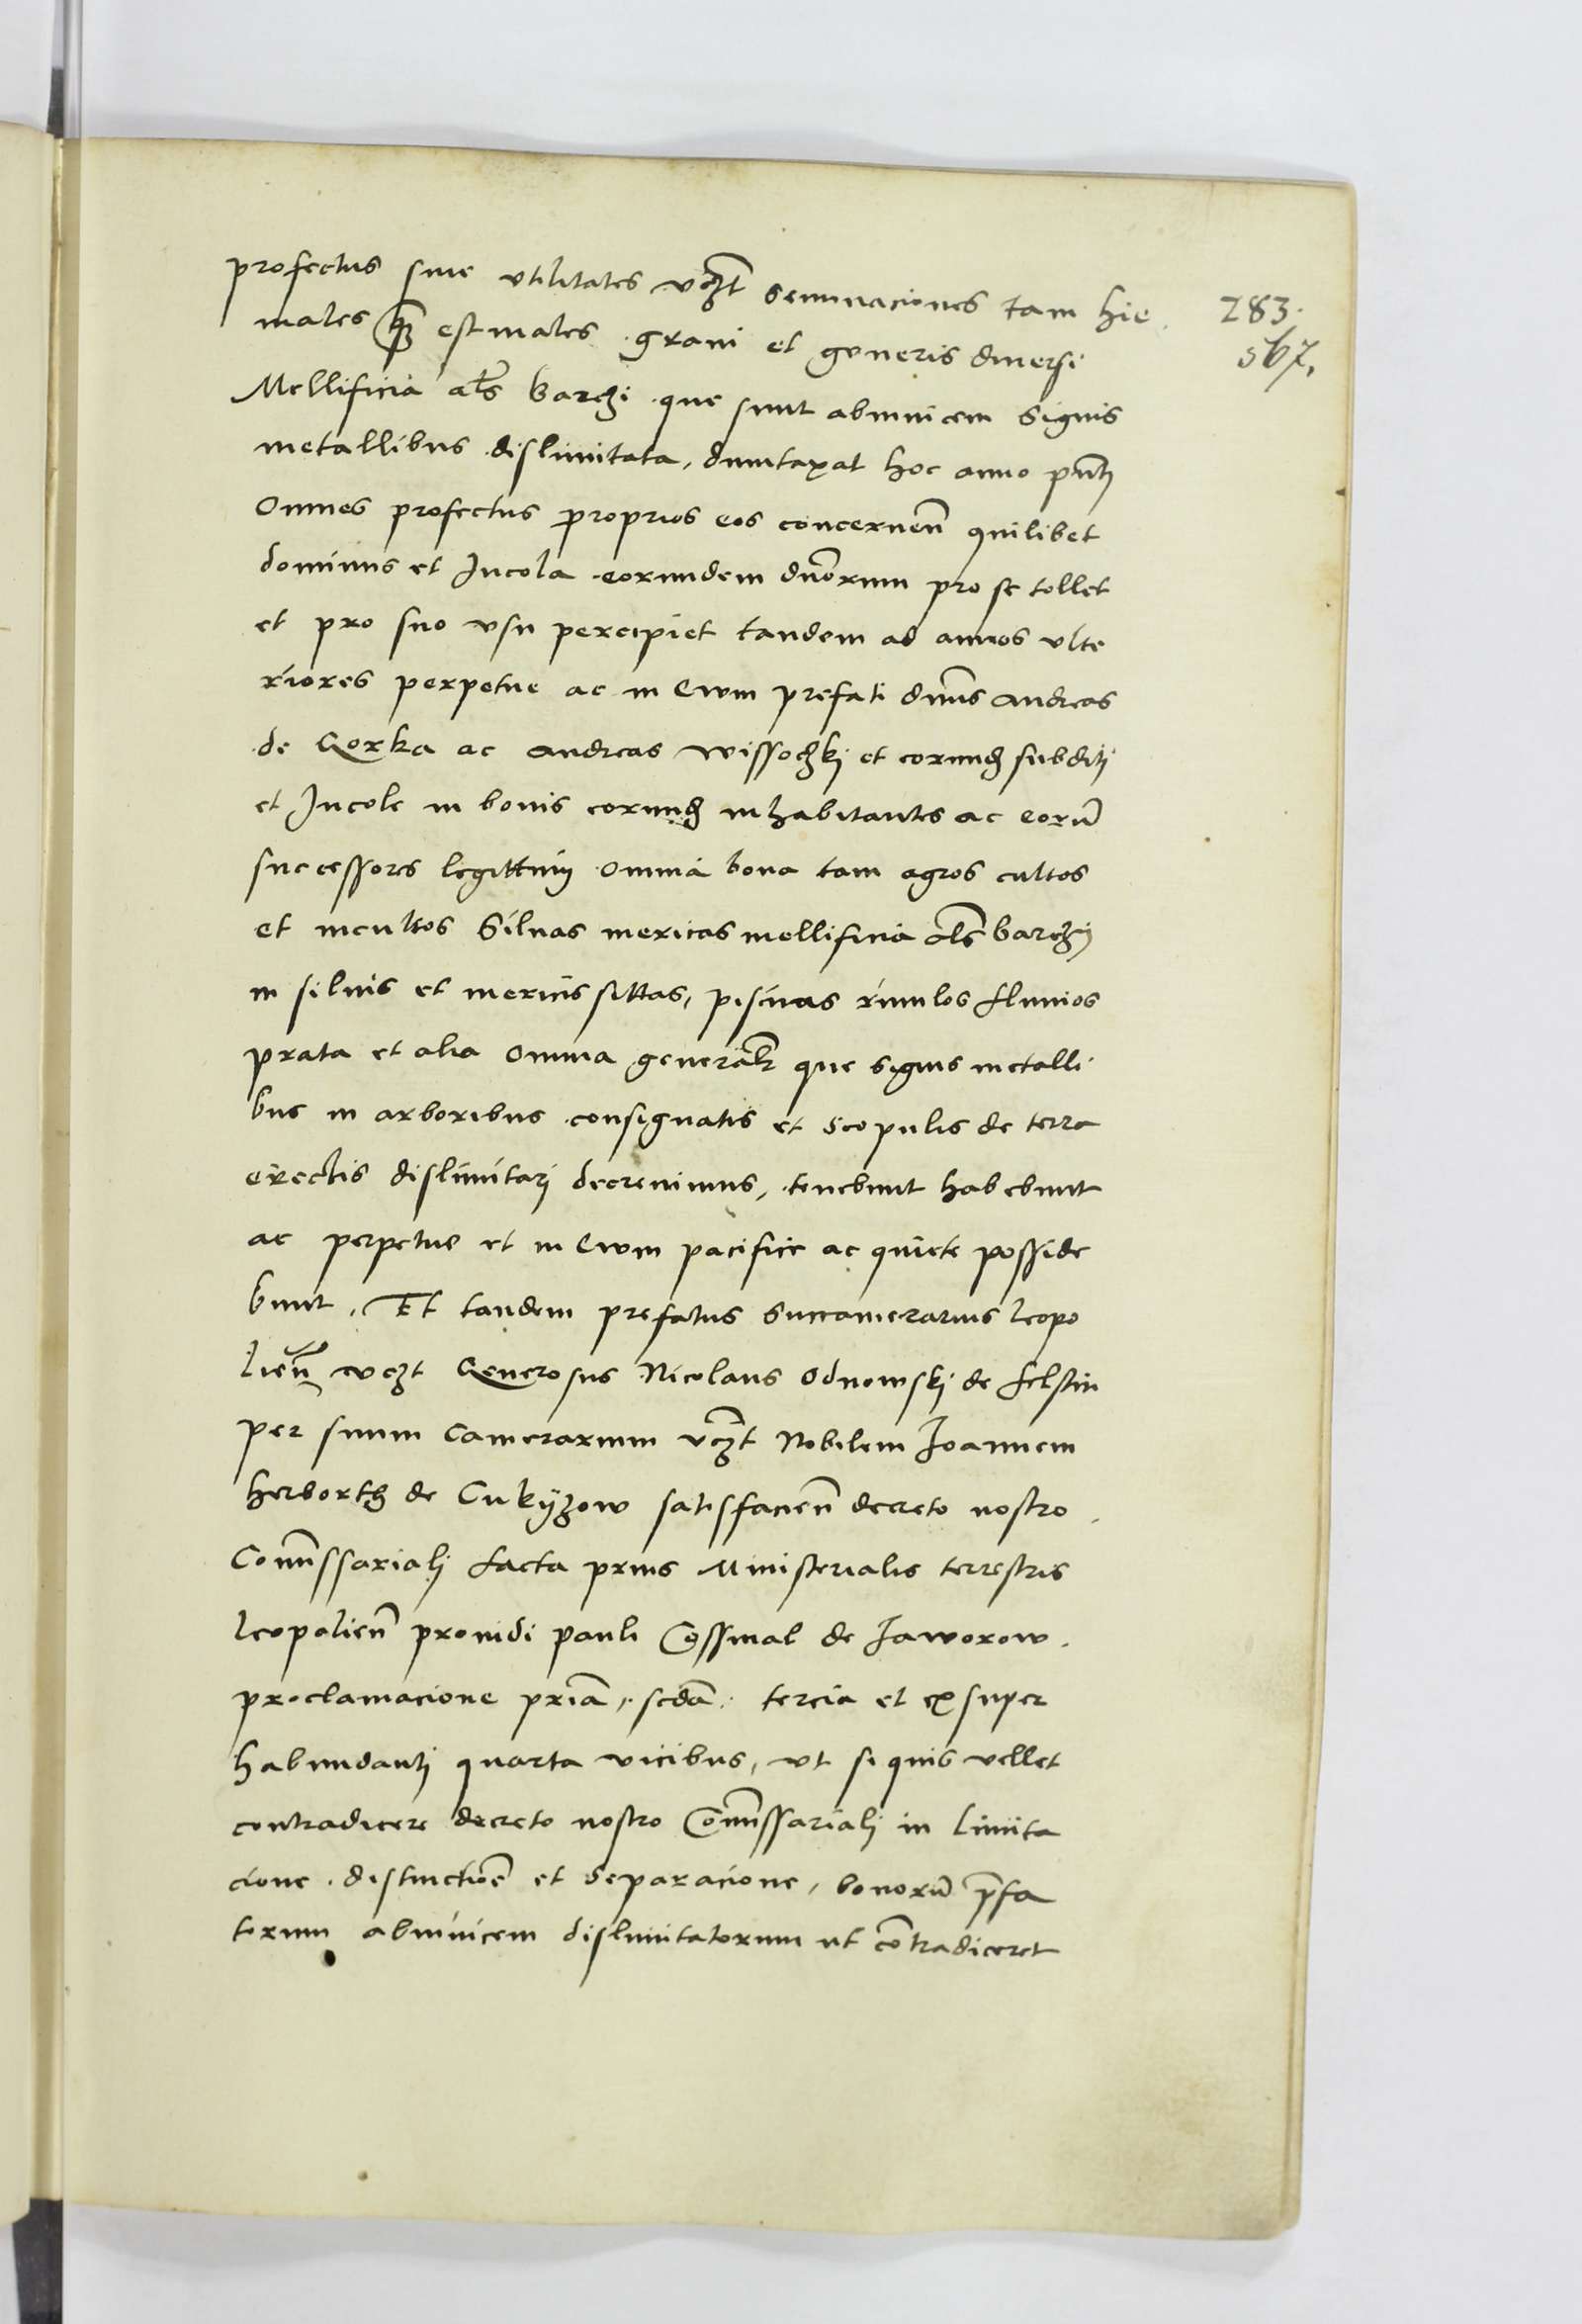 profectus siue vtilitates vczt seminaciones tam hie
males q̃ estiuales grani et generis diuersi
Mellificia als barczi que sunt abinuicem signis
metallibus dislimitata, dumtaxat hoc anno pnti
Omnes profectus proprios eos concernen̄ quilibet
dominus et Incola eorundem dnorum pro se tollet
et pro suo vsu percipiet tandem ad annos vlte
riores perpetue ac in Ewm prefati dnns Andreas
de Gorka ac Andreas Wissoczkj et eorund subditi
et Incole in bonis eorund inhabitantes ac eorū
successores legittimj omnia bona tam agros cultos
et incultos Siluas mericas mellificia als barczij
in siluis et mericis sittas, piscinas riuulos fluuios
prata et alia omnia generalr que signis metalli
bus in arboribus consignatis et scopulis de terra
erectis dislimitarj decreuimus, tenebunt habebunt
ac perpetue et in Ewm pacifice ac quiete posside
bunt. Et tandem prefatus Succamerarius leopo
lien̄ vczt Generosus Nicolaus Odnowskj de Felstin
per suum Camerarium vczt Nobilem Joannem
Herborth de Cukyzow satisfacien̄ decreto nostro
Comissarialj facta prius Ministerialis terrestris
leopolien̄ prouidi Pauli Cossmal de Jaworow
proclamacione priā, scdā tercia et ex super
habundanti quarta vicibus, vt si quis vellet
contradicere decreto nostro Comissarialj in limita
cione distinctiōe et separacione, bonorū p̄fa
torum abinuicem dislimitatorum ut cōtradiceret
283.
567,